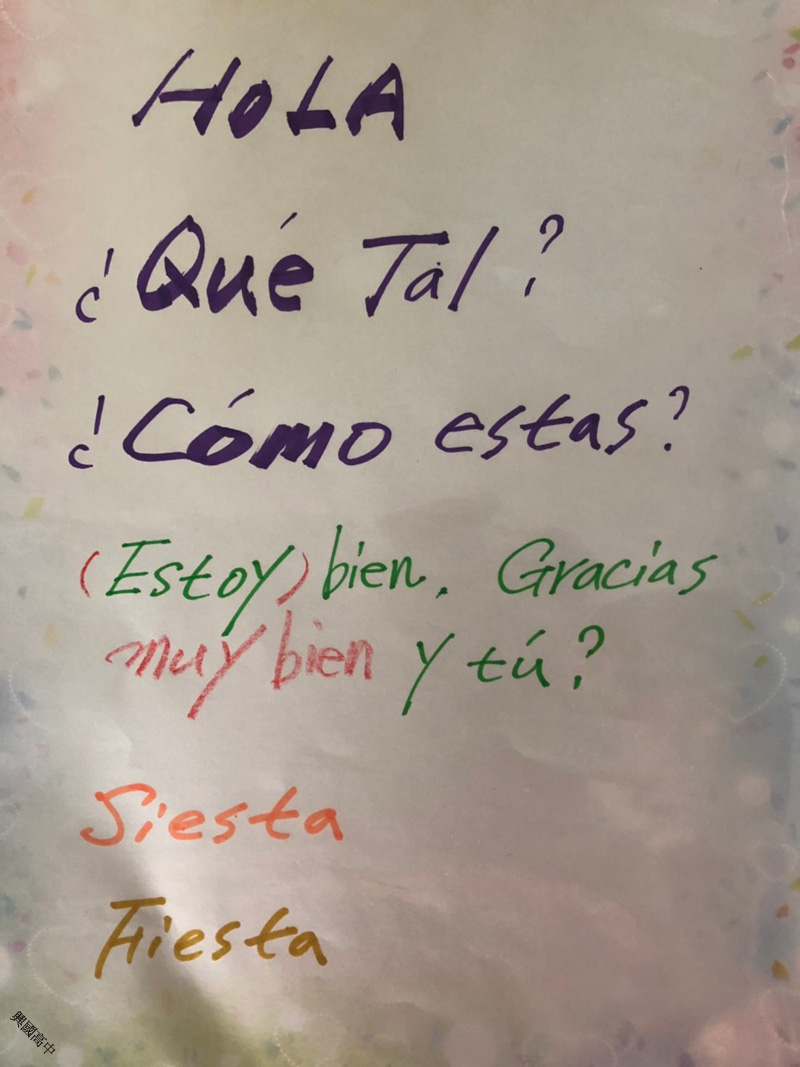 HOLA
¿Qué Tal?
¿Cómo estas?
(Estoy) bien. Gracias
muy bien y tú?
Siesta
Fiesta
興國高中